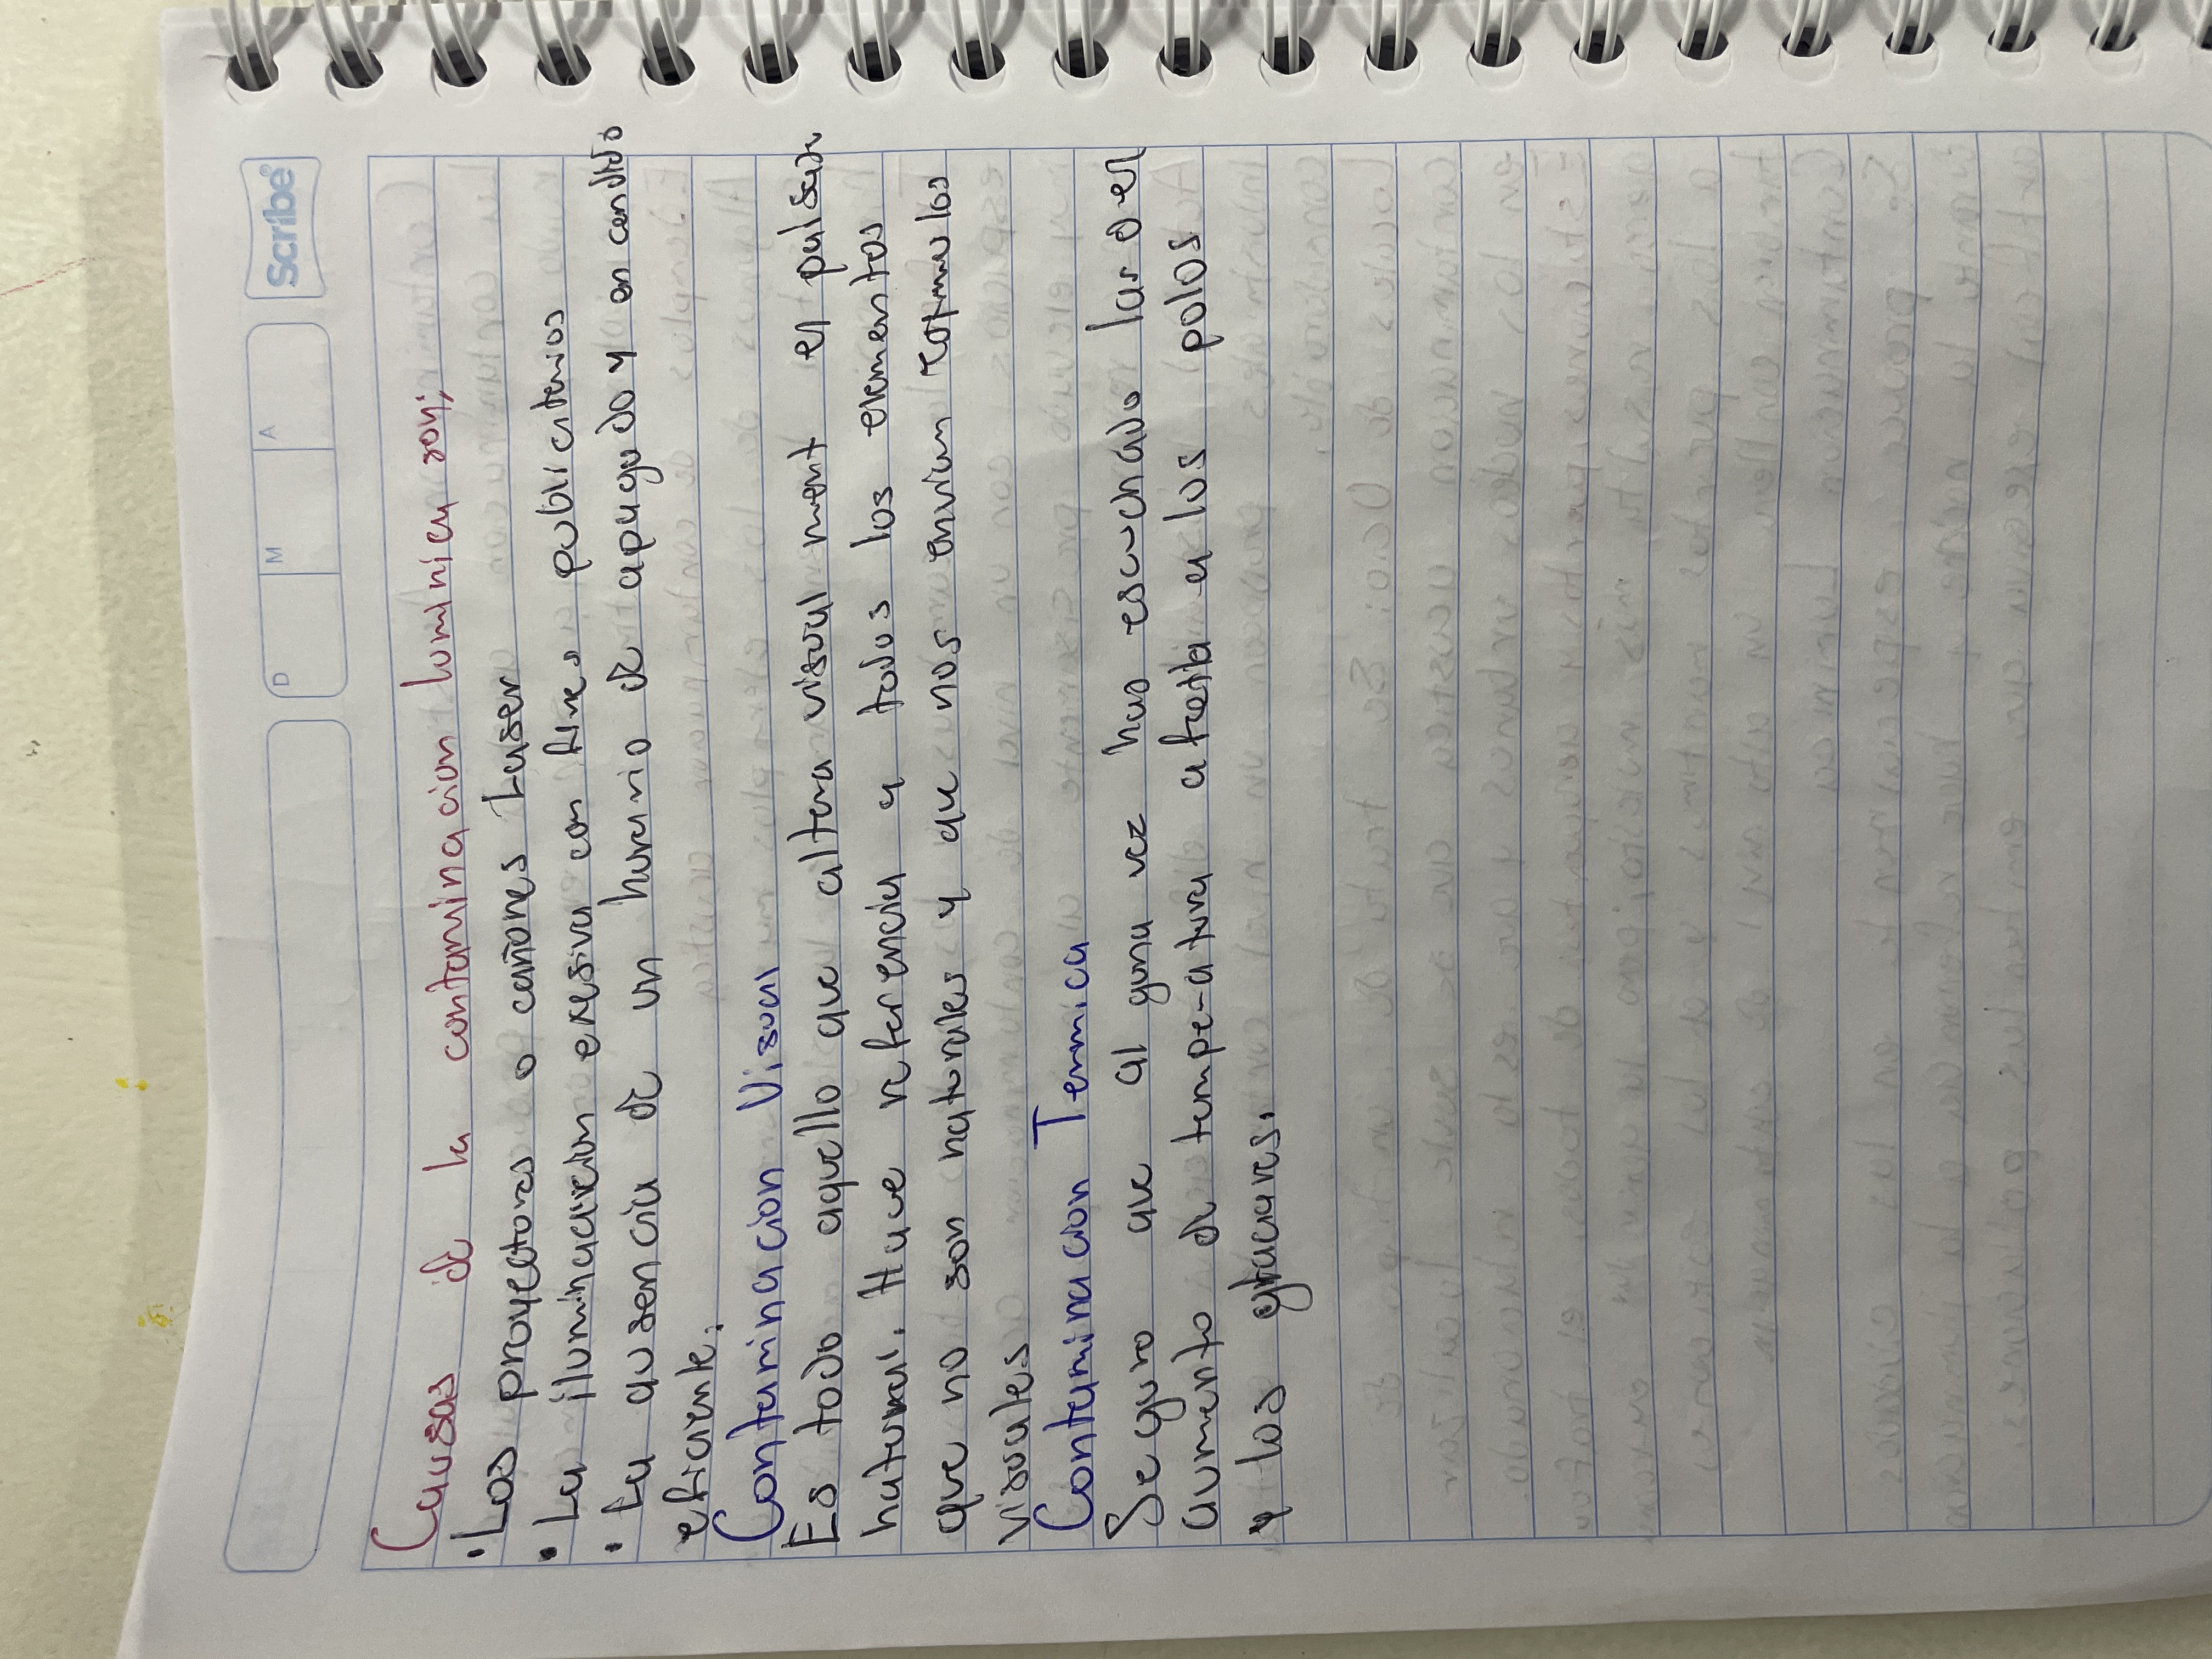 Scribe
D M A
Causas de la contaminacion luminica son;
• Los proyectores o cañones Laser
• La iluminacion exesiva con fines publicitarios
• La ausencia de un horario de apagado y encendido
eficiente.
Contaminacion Visual
Es todo aquello que altera visualment el paisaje
natural. Hace referencia a todos los elementos
que no son naturales y que nos envian estimulos
visuales
Contaminacion Termica
Seguro que alguna vez has escuchado las el
aumento de temperatura afecta a los polos
y los glaciares.